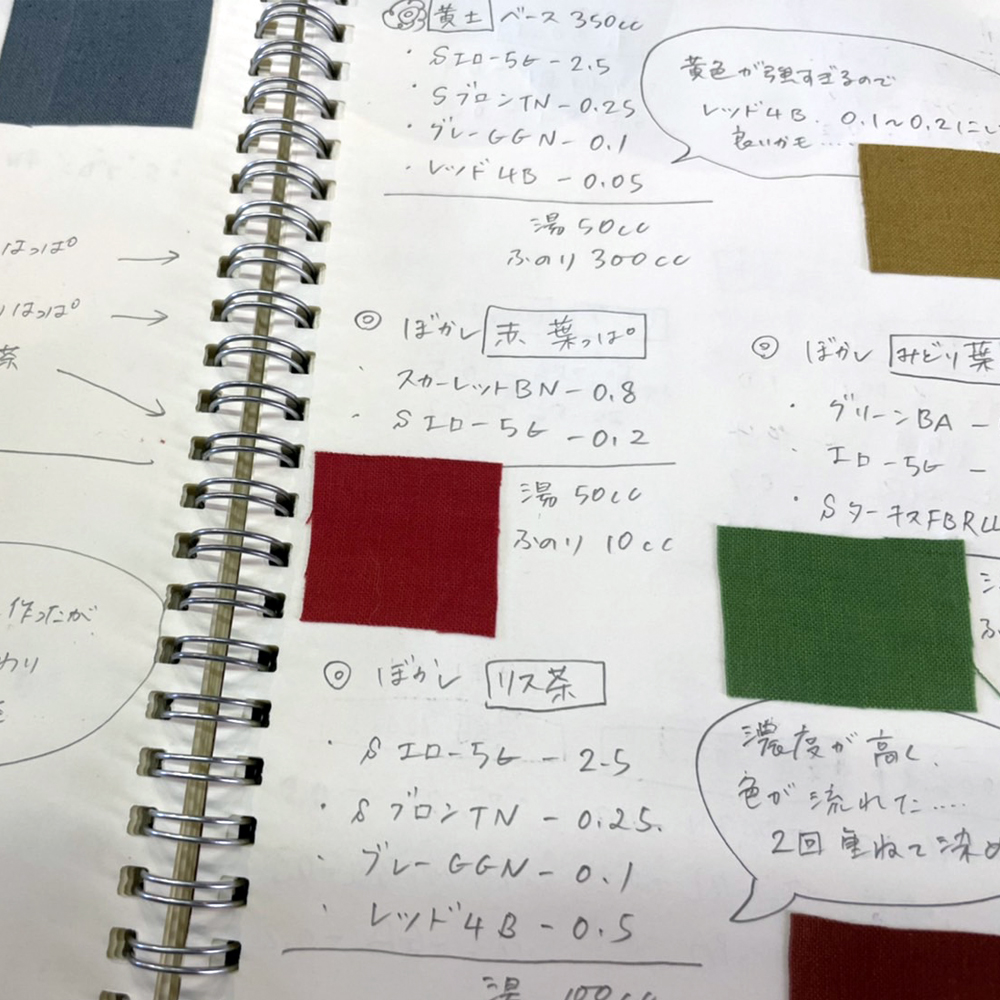 はっぱ →
はっぱ →
茶
作ったが
わり
黄土 ベース 350cc
・Sエロー5G - 2.5
・SブロンTN - 0.25
・グレーGGN - 0.1
・レッド4B - 0.05
湯 50cc
ふのり 300cc
黄色が強すぎるので
レッド4B. 0.1~0.2にし
良いかも....
◎ ぼかし 赤葉っぱ
・スカーレットBN - 0.8
・Sエロー5G - 0.2
湯 50cc
ふのり 10cc
◎ ぼかし リス茶
・Sエロー5G - 2.5
・SブロンTN - 0.25.
・グレーGGN - 0.1
・レッド4B - 0.5
湯 100cc
◎ ぼかし みどり葉
・グリーンBA -
・エロー5G -
・SターキスFBRLL
ふ
濃度が高く、
色が流れた....
2回重ねて染め